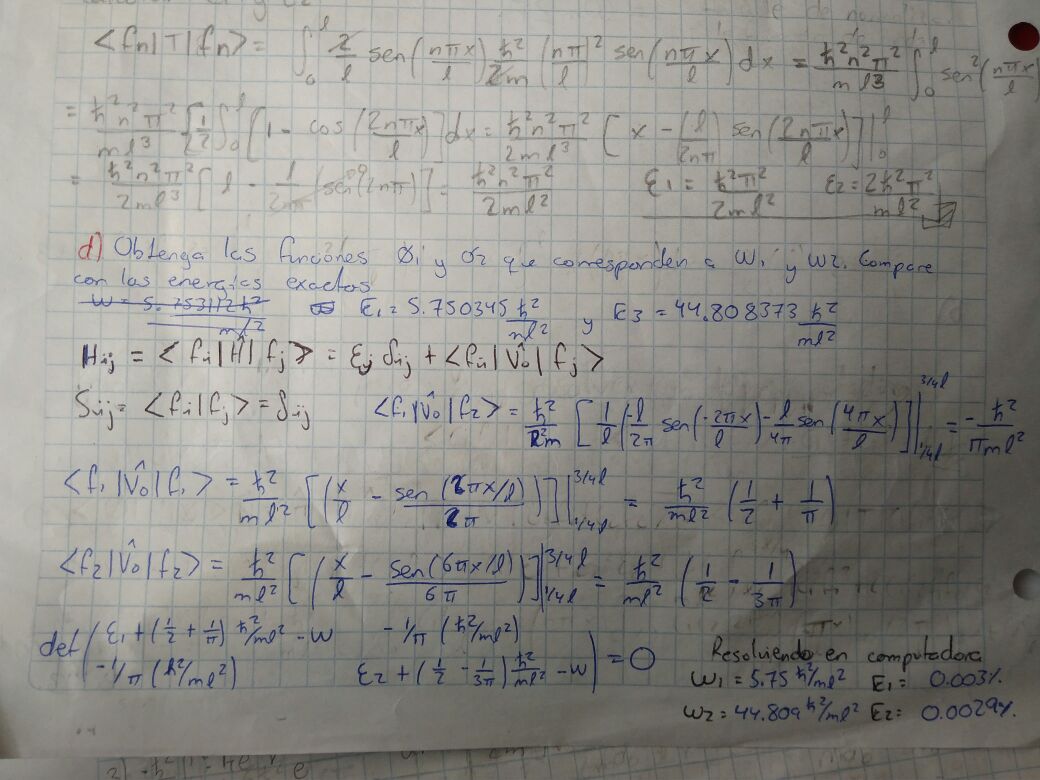 <fn|T|fn> = ∫₀ˡ 2/l sen(nπx/l) ħ²/2m (nπ/l)² sen(nπx/l) dx = ħ²n²π²/ml³ ∫₀ˡ sen²(nπx/l)
= ħ²n²π²/ml³ {1/2 ∫₀ˡ [1 - cos(2nπx/l)] dx = ħ²n²π²/2ml³ [x - (l/2nπ) sen(2nπx/l)]|₀ˡ
= ħ²n²π²/2ml³ [l - 1/2π sen(2nπ)⁰] = ħ²n²π²/2ml² ε₁ = ħ²π²/2ml² ε₂ = 2ħ²π²/ml²
d) Obtenga las funciones Ø₁ y Ø₂ que corresponden a W₁ y W2. Compare
con las energías exactas
E₁ = 5.750345 ħ²/ml² y E3 = 44.808373 ħ²/ml²
Hij = <fi|Ĥ|fj> = εj δij + <fi|V̂₀|fj>
Sij = <fi|fj> = δij <f₁|V̂₀|f₂> = ħ²/l²m [1/l (-l/2π sen(-2πx/l) - l/4π sen(4πx/l))]|1/4l 3/4l = -ħ²/πml²
<f₁|V̂₀|f₁> = ħ²/ml² [(x/l - sen(2πx/l)/2π)]|1/4l 3/4l = ħ²/ml² (1/2 + 1/π)
<f₂|V̂₀|f₂> = ħ²/ml² [(x/l - sen(6πx/l)/6π)]|1/4l 3/4l = ħ²/ml² (1/2 - 1/3π)
det( ε₁ + (1/2 + 1/π) ħ²/ml² - W -1/π (ħ²/ml²)
-1/π (ħ²/ml²) ε₂ + (1/2 - 1/3π) ħ²/ml² - W ) = 0
Resolviendo en computadora
W₁ = 5.75 ħ²/ml² E₁ = 0.003%
W₂ = 44.809 ħ²/ml² E₂ = 0.0029%